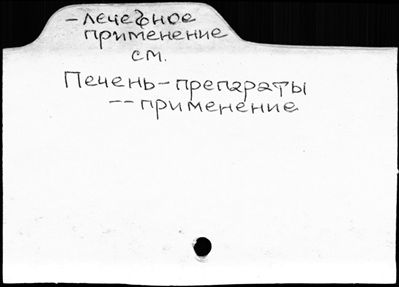 - лечебное
применение
см.
Печень - препараты
-- применение